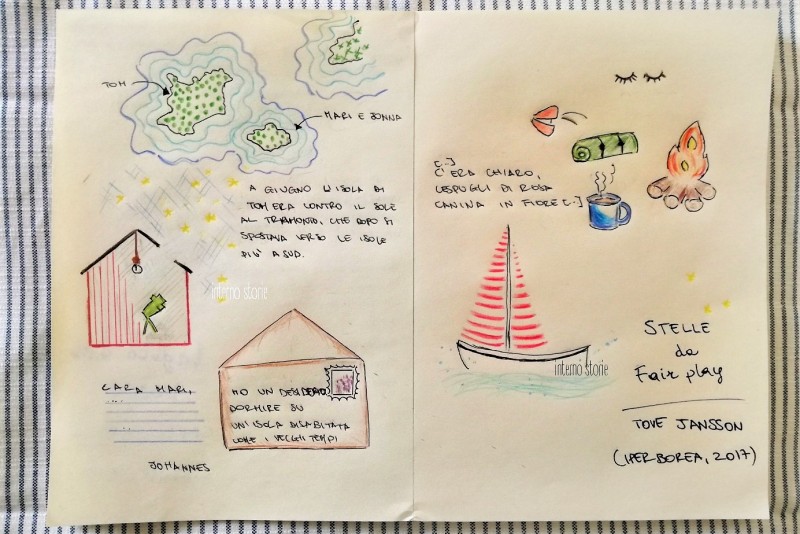 TOM
MARI E JONNA
A GIUGNO L'ISOLA DI
TOM ERA CONTRO IL SOLE
AL TRAMONTO, CHE DOPO SI
SPOSTAVA VERSO LE ISOLE
PIÙ A SUD.
interno storie
CARA MARI,
JOHANNES
HO UN DESIDERIO:
DORMIRE SU
UN'ISOLA DISABITATA
COME I VECCHI TEMPI
[..]
C'ERA CHIARO,
CESPUGLI DI ROSA
CANINA IN FIORE [..]
interno storie
STELLE
da
Fair play
TOVE JANSSON
(IPERBOREA, 2017)